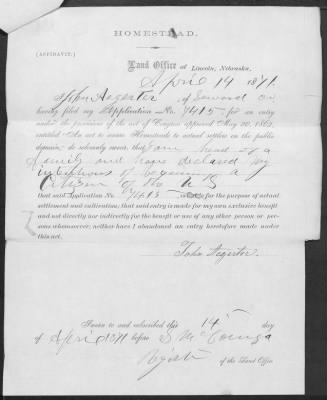 HOMESTEAD.
(AFFIDAVIT.)
Land Office at Lincoln, Nebraska,
April 14 1871.
I, John Aegerter of Seward Co
having filed my Application No. 7415 for an entry
under the provisions of the act of Congress approved May 20, 1862,
entitled "An act to secure Homesteads to actual settlers on the public
domain," do solemnly swear, that I am head of a
family and have declared my
intentions of becoming a
Citizen of the U S
that said Application No. 7415 is made for the purpose of actual
settlement and cultivation; that said entry is made for my own exclusive benefit
and not directly nor indirectly for the benefit or use of any other person or per-
sons whomsoever; neither have I abandoned an entry heretofore made under
this act.
John Aegerter.
Sworn to and subscribed this 14 day
of April 1871 before
Register of the Land Office